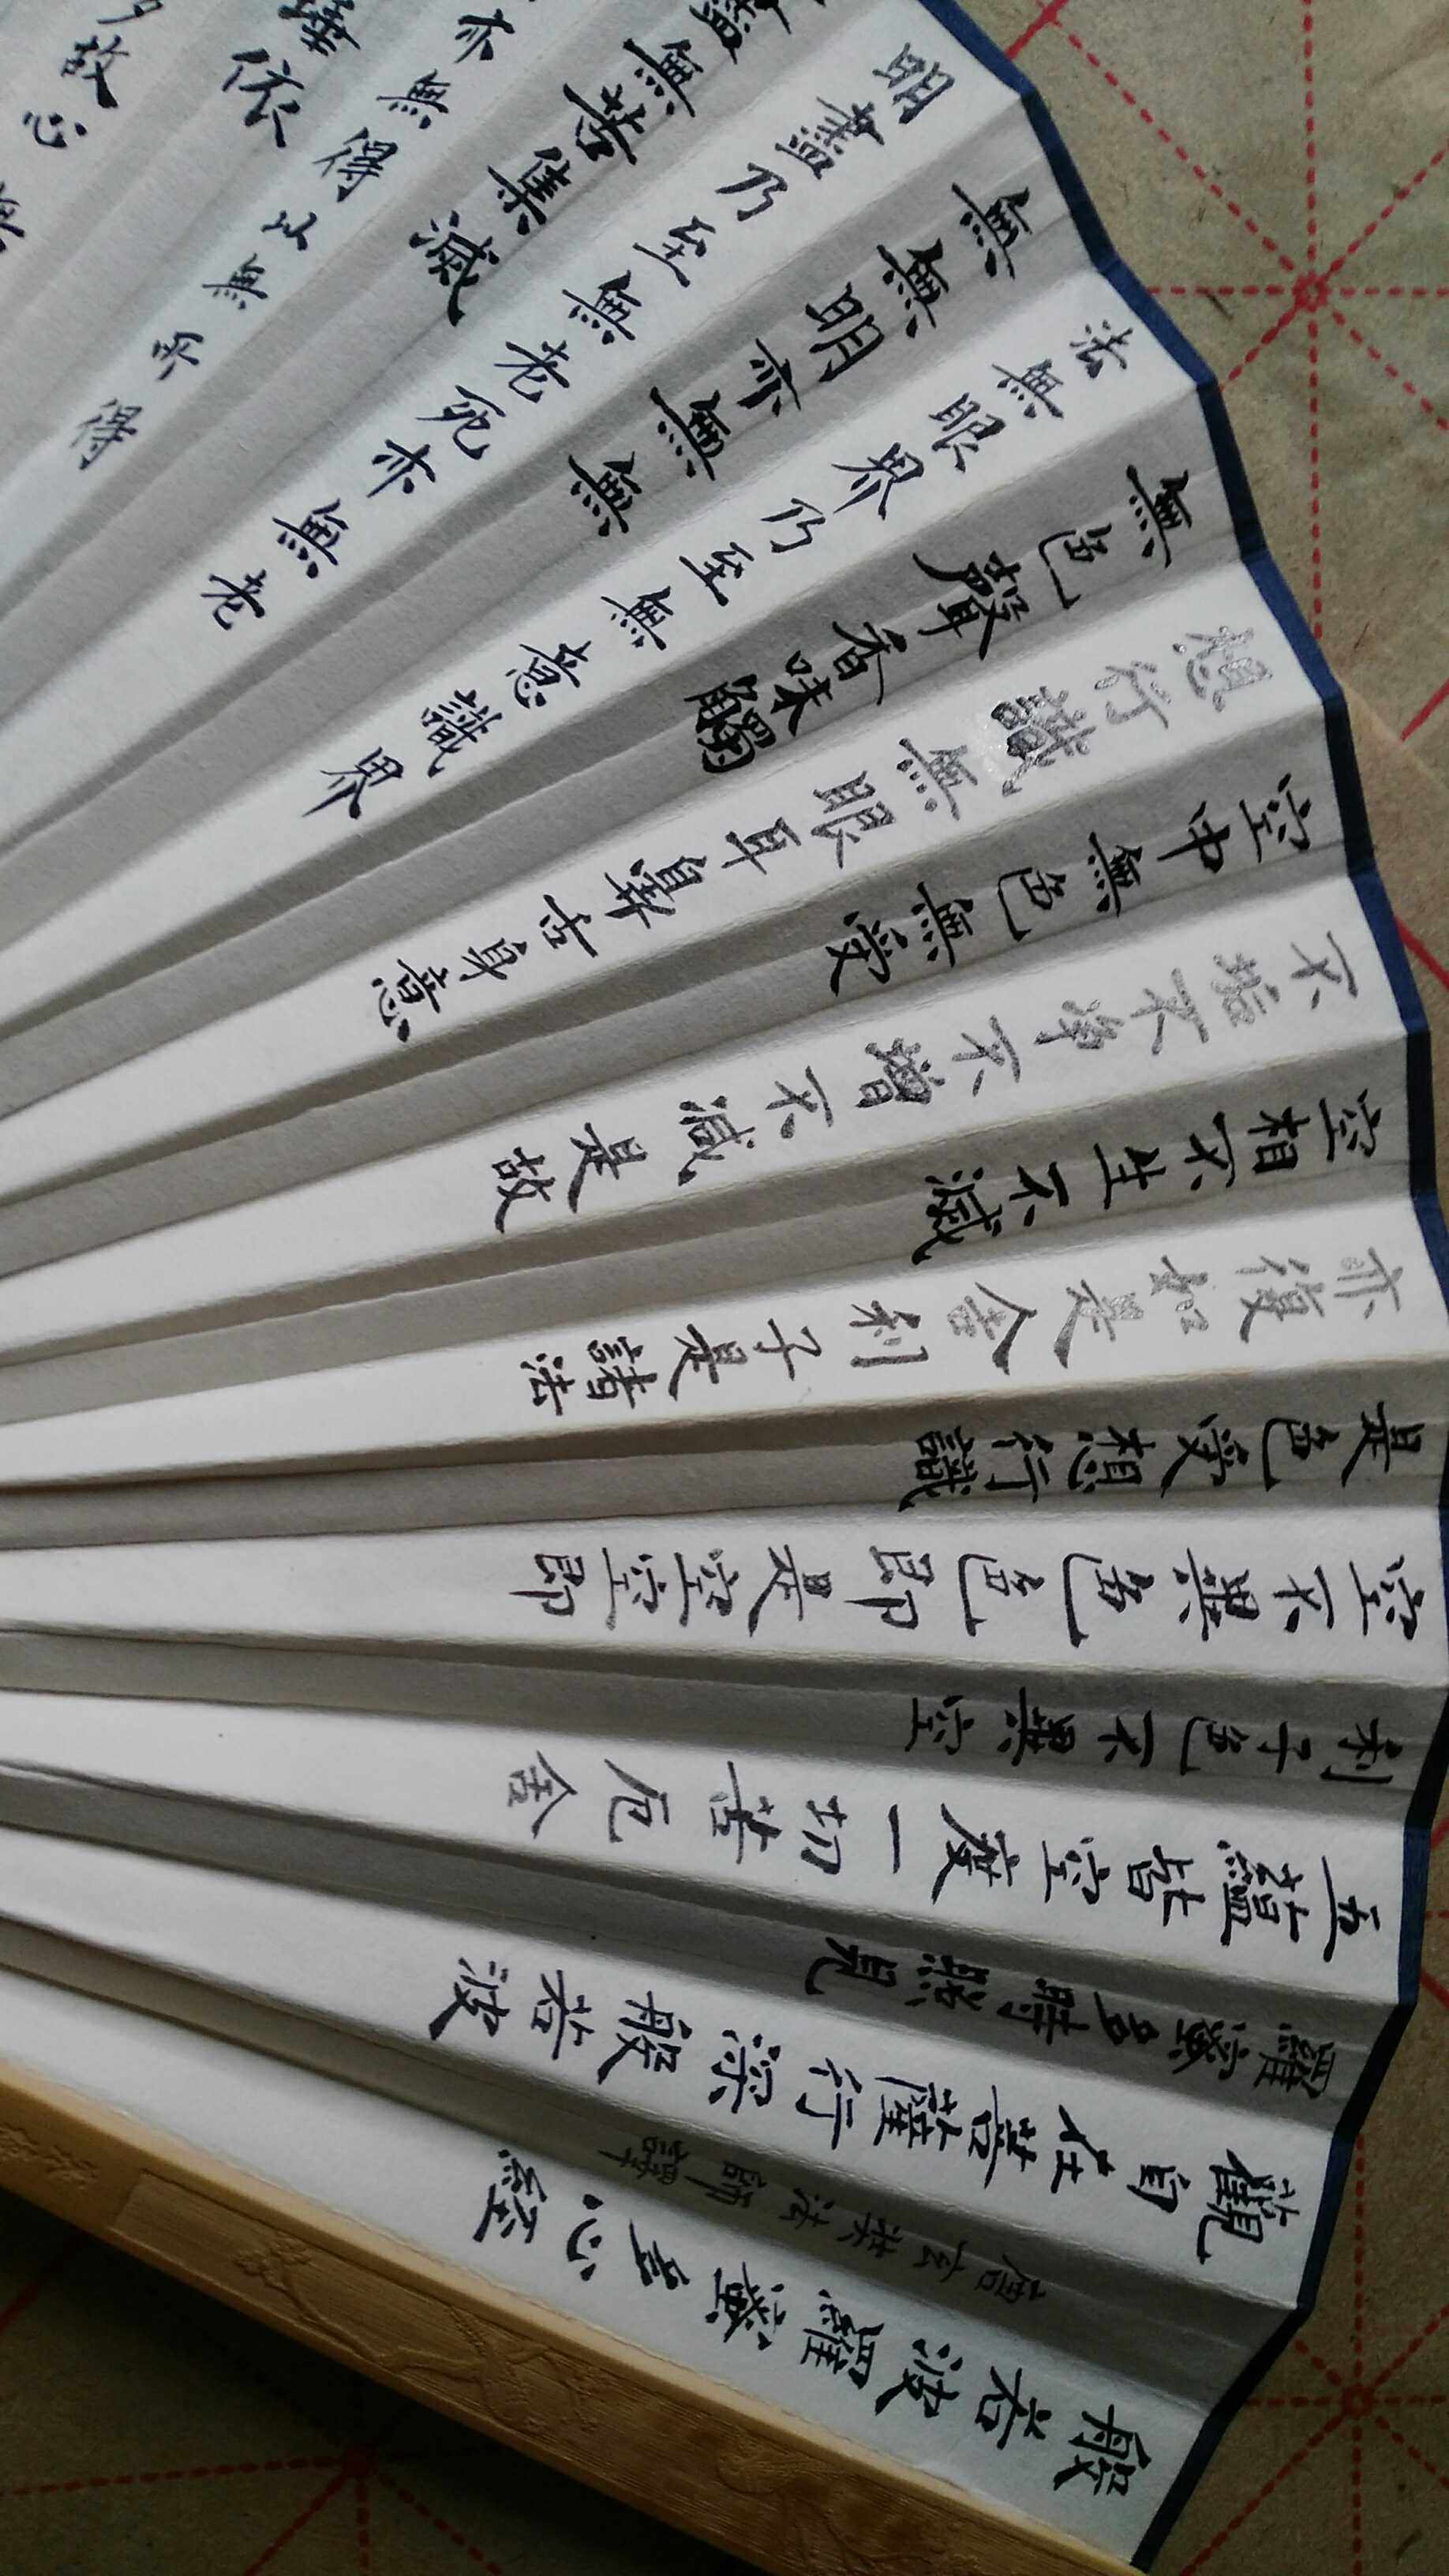 般若波羅蜜多心經
唐玄奘法師譯
觀自在菩薩行深般若波
羅蜜多時照見
五蘊皆空度一切苦厄舍
利子色不異空
空不異色色即是空空即
是色受想行識
亦復如是舍利子是諸法
空相不生不滅
不垢不淨不增不減是故
空中無色無受
想行識無眼耳鼻舌身意
無色聲香味觸
法無眼界乃至無意識界
無無明亦無無
明盡乃至無老死亦無老
盡無苦集滅
亦無得以無所得
埵依
多故心